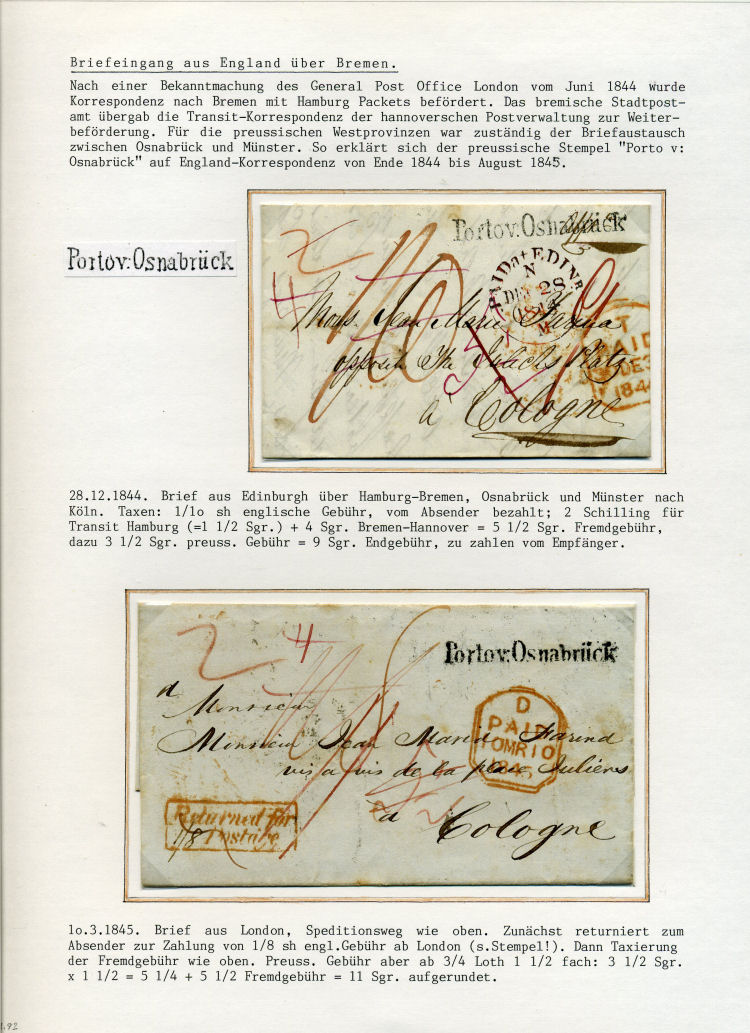 Briefeingang aus England über Bremen.
Nach einer Bekanntmachung des General Post Office London vom Juni 1844 wurde
Korrespondenz nach Bremen mit Hamburg Packets befördert. Das bremische Stadtpost-
amt übergab die Transit-Korrespondenz der hannoverschen Postverwaltung zur Weiter-
beförderung. Für die preussischen Westprovinzen war zuständig der Briefaustausch
zwischen Osnabrück und Münster. So erklärt sich der preussische Stempel "Porto v:
Osnabrück" auf England-Korrespondenz von Ende 1844 bis August 1845.
Porto v: Osnabrück
Porto v: Osnabrück
PAID at EDINR
N
DE 28
1844
M
Mons. Jean Marie Farina
opposite The Juliers Platz
a Cologne
PAID
DE3
184
2
4
28.12.1844. Brief aus Edinburgh über Hamburg-Bremen, Osnabrück und Münster nach
Köln. Taxen: 1/1o sh englische Gebühr, vom Absender bezahlt; 2 Schilling für
Transit Hamburg (=1 1/2 Sgr.) + 4 Sgr. Bremen-Hannover = 5 1/2 Sgr. Fremdgebühr,
dazu 3 1/2 Sgr. preuss. Gebühr = 9 Sgr. Endgebühr, zu zahlen vom Empfänger.
2
4
Porto v: Osnabrück
a
Monsieur
Monsieur Jean Maria Farina
vis a vis de la place Juliers
a
Cologne
D
PAID
10MR10
1845
Returned for
Postage
1/8
1o.3.1845. Brief aus London, Speditionsweg wie oben. Zunächst returniert zum
Absender zur Zahlung von 1/8 sh engl.Gebühr ab London (s.Stempel!). Dann Taxierung
der Fremdgebühr wie oben. Preuss. Gebühr aber ab 3/4 Loth 1 1/2 fach: 3 1/2 Sgr.
x 1 1/2 = 5 1/4 + 5 1/2 Fremdgebühr = 11 Sgr. aufgerundet.
.92